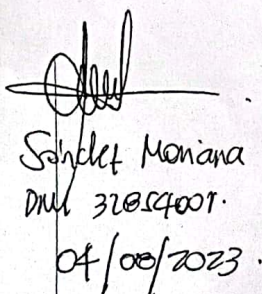 Sánchez Mariana
DNI 32854007.
04/08/2023.